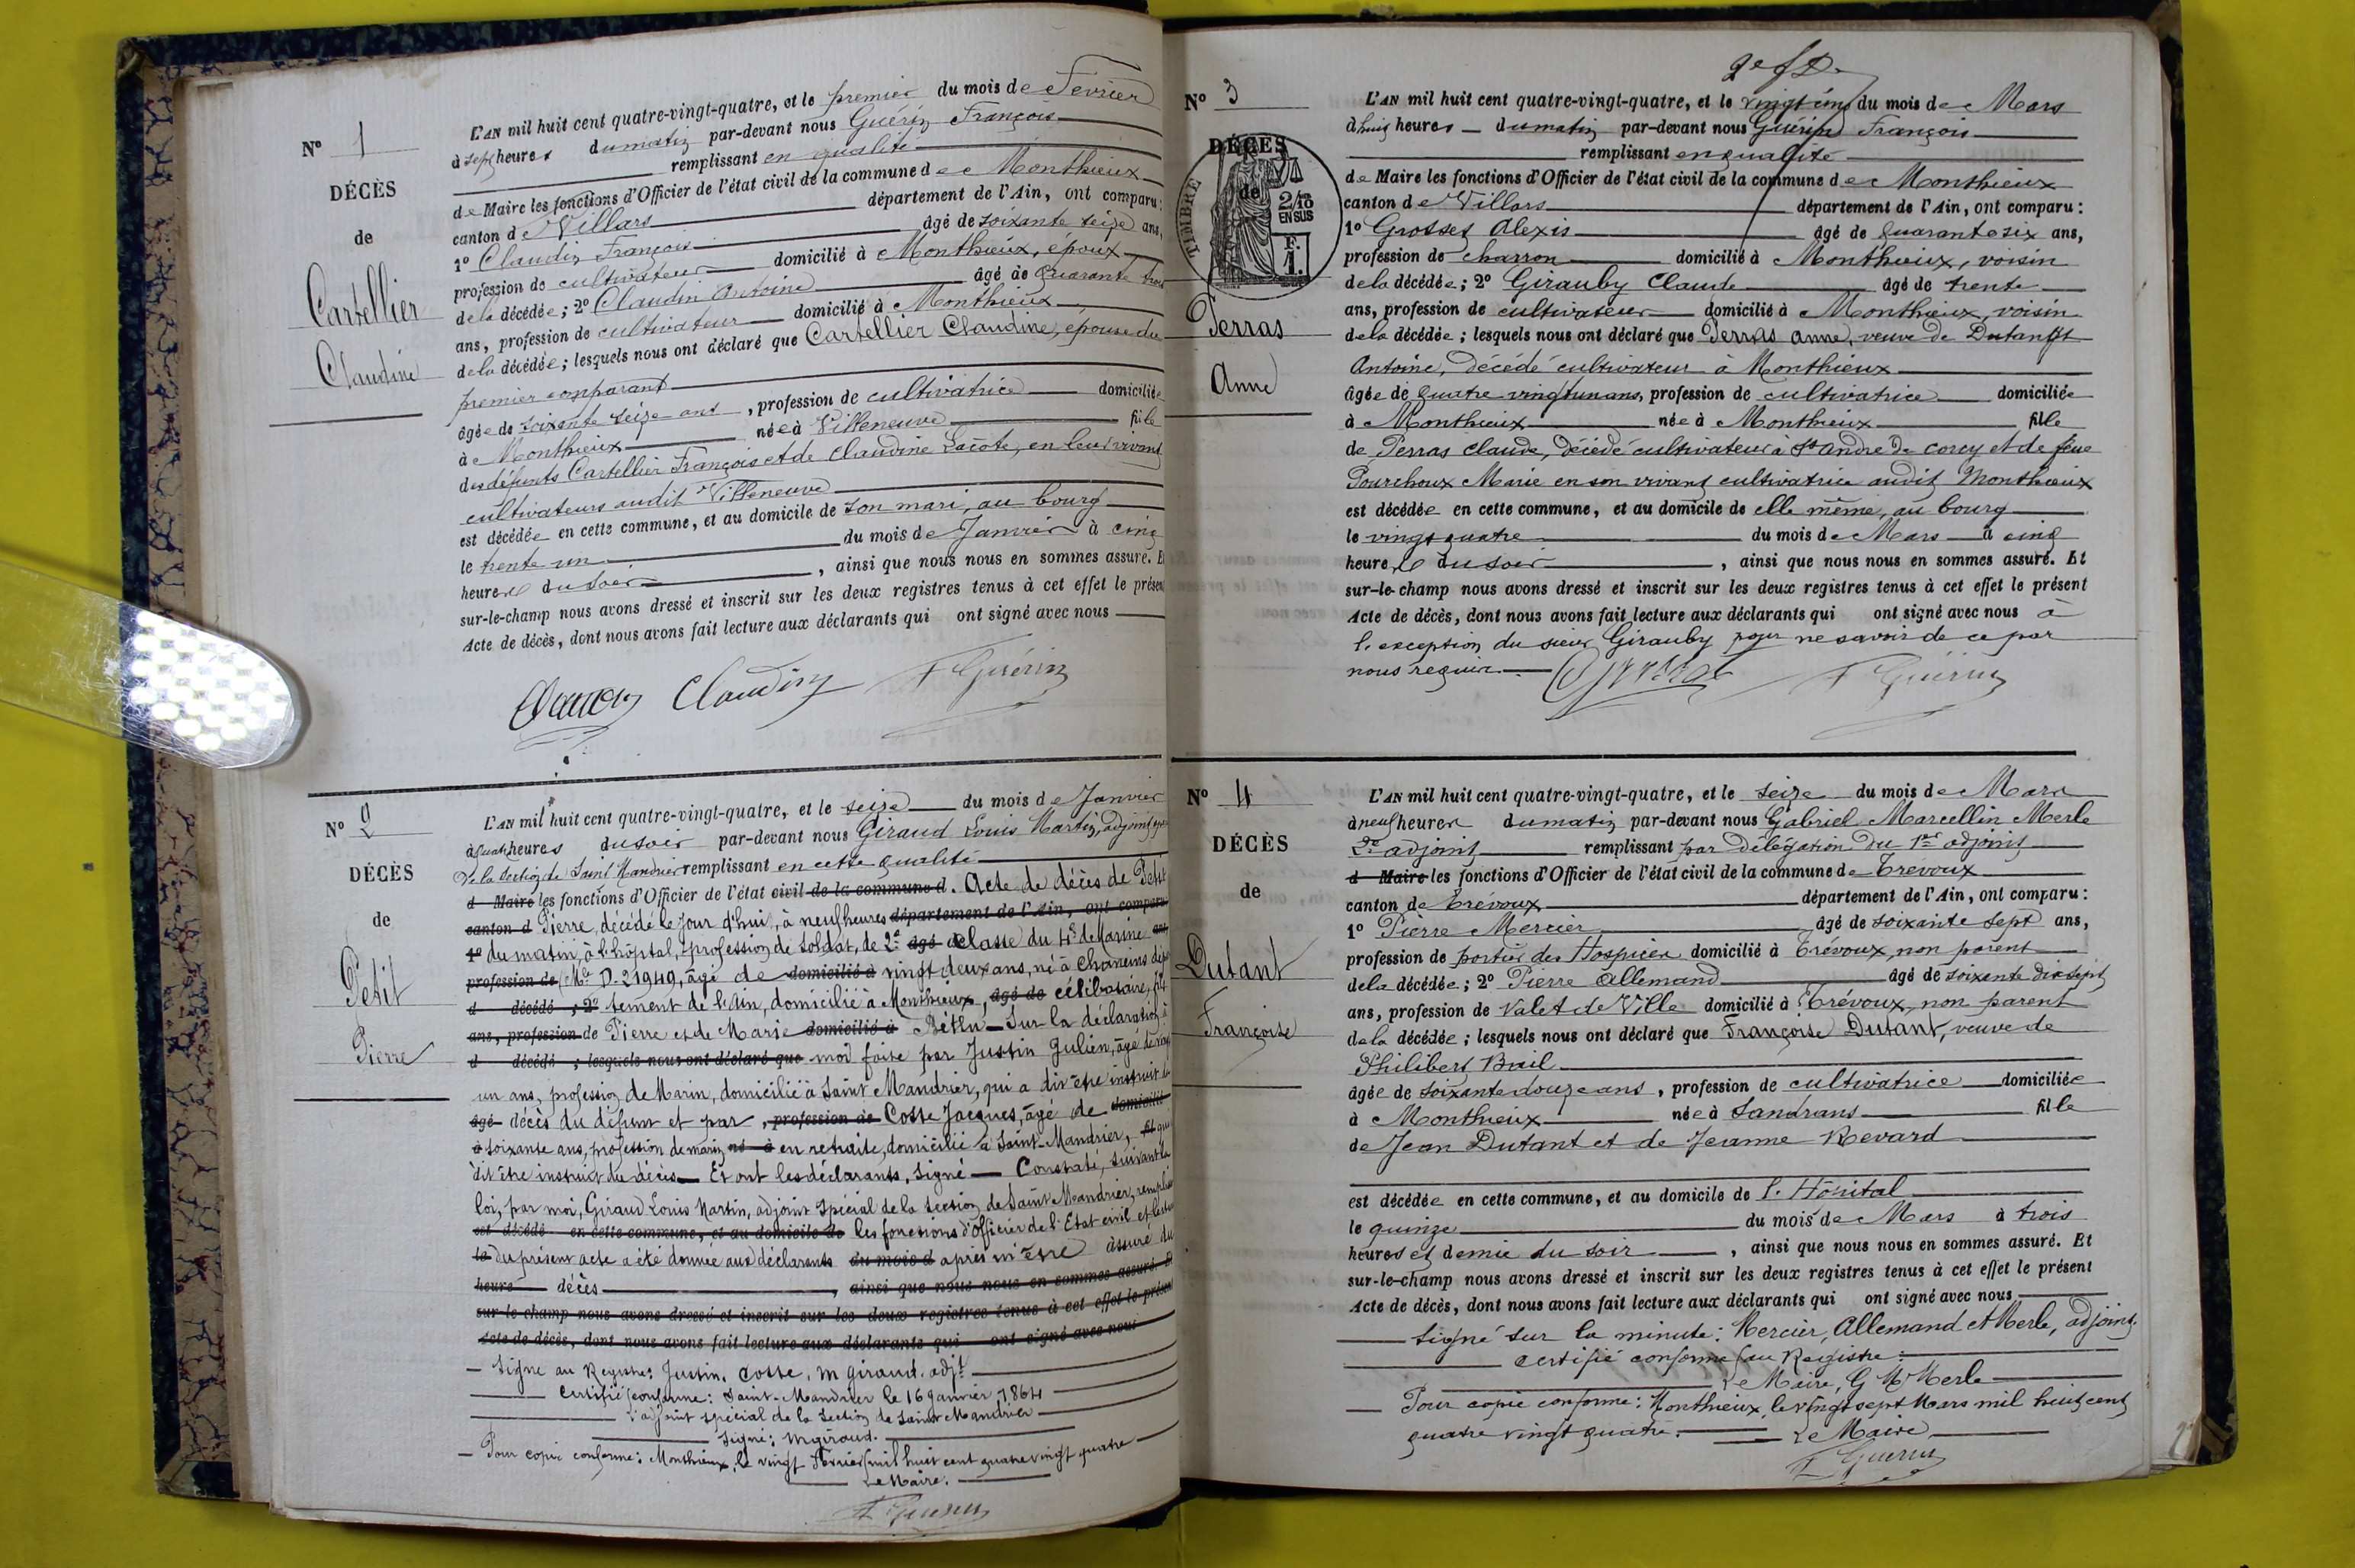 N° 1
DÉCÈS
de
Cartellier
Claudine
L'AN mil huit cent quatre-vingt-quatre, et le premier du mois de Février
à sept heures du matin par-devant nous Guérin François
remplissant en qualité
de Maire les fonctions d'Officier de l'état civil de la commune de Monthieux
canton de Villars département de l'Ain, ont comparu :
1° Claudin François âgé de soixante seize ans,
profession de cultivateur domicilié à Monthieux, époux
de la décédée ; 2° Claudin Antoine âgé de quarante trois
ans, profession de cultivateur domicilié à Monthieux
de la décédée ; lesquels nous ont déclaré que Cartellier Claudine, épouse du
premier comparant
âgée de soixante seize ans, profession de cultivatrice domiciliée
à Monthieux née à Villeneuve fille
des défunts Cartellier François et de Claudine Lacote, en leur vivant
cultivateurs audit Villeneuve
est décédée en cette commune, et au domicile de son mari, au bourg
le trente un du mois de Janvier à cinq
heures du soir, ainsi que nous nous en sommes assuré. Et
sur-le-champ nous avons dressé et inscrit sur les deux registres tenus à cet effet le présent
Acte de décès, dont nous avons fait lecture aux déclarants qui ont signé avec nous
Claudin Claudin F Guérin
N° 2
DÉCÈS
de
Petit
Pierre
L'AN mil huit cent quatre-vingt-quatre, et le seize du mois de Janvier
à quatre heures du soir par-devant nous Giraud Louis Martin, adjoint
de la Section de Saint Mandrier remplissant en cette qualité
d Maire les fonctions d'Officier de l'état civil de la commune d. Acte de décès de Petit
canton d Pierre, décédé le jour d'hui, à neuf heures département de l'Ain, ont comparu
1° du matin, à l'hôpital, profession de soldat, de 2e âgé classe du 4e de Marine ans
profession de Mle D. 21949, âgé de domicilié à vingt deux ans, né à Chaneins dépar
d décédé ; 2° tement de l'Ain, domicilié à Monthieux, âgé de célibataire, fils
ans, profession de Pierre et de Marie domicilié à Béthu - Sur la déclaration à
d décédé ; lesquels nous ont déclaré que moi faite par Justin Julien, âgé de vingt
un ans, profession de Marin, domicilié à Saint Mandrier, qui a dit être instruit du
âgé décès du défunt et par, profession de Cosse Jacques, âgé de domicilié
à soixante ans, profession de marin né à en retraite, domicilié à Saint-Mandrier, fil qui
dit être instruit du décès - Et ont les déclarants, signé - Constaté, suivant la
loi, par moi, Giraud Louis Martin, adjoint spécial de la section de Saint Mandrier, remplis
est décédé en cette commune, et au domicile de les fonctions d'officier de l'Etat civil et lecture
le du présent acte a été donnée aux déclarants du mois d après m'être assuré du
heure décès, ainsi que nous nous en sommes assuré. Et
sur-le-champ nous avons dressé et inscrit sur les deux registres tenus à cet effet le présent
Acte de décès, dont nous avons fait lecture aux déclarants qui ont signé avec nous
- Signé au Registre: Justin, Cosse, M Giraud, adjt
Certifié conforme: Saint-Mandrier le 16 Janvier 1884
L'adjoint spécial de la section de Saint Mandrier
Signé: M giraud.
- Pour copie conforme: Monthieux, le vingt Février mil huit cent quatre vingt quatre
Le Maire.
F Guérin
N° 3
DÉCÈS
de
TIMBRE
2/10
EN SUS
F.
1.
Perras
Anne
L'AN mil huit cent quatre-vingt-quatre, et le vingt cinq du mois de Mars
à huit heures du matin par-devant nous Guérin François
remplissant en qualité
de Maire les fonctions d'Officier de l'état civil de la commune de Monthieux
canton de Villars département de l'Ain, ont comparu :
1° Grosset Alexis âgé de quarante six ans,
profession de charron domicilié à Monthieux, voisin
de la décédée ; 2° Girauby Claude âgé de trente
ans, profession de cultivateur domicilié à Monthieux, voisin
de la décédée ; lesquels nous ont déclaré que Perras Anne, veuve de Dutant
Antoine, décédé cultivateur à Monthieux
âgée de quatre vingt un ans, profession de cultivatrice domiciliée
à Monthieux née à Monthieux fille
de Perras Claude, décédé cultivateur à St André de Corcy et de feue
Pourchoux Marie en son vivant cultivatrice audit Monthieux
est décédée en cette commune, et au domicile de elle même, au bourg
le vingt quatre du mois de Mars à cinq
heures du soir, ainsi que nous nous en sommes assuré. Et
sur-le-champ nous avons dressé et inscrit sur les deux registres tenus à cet effet le présent
Acte de décès, dont nous avons fait lecture aux déclarants qui ont signé avec nous à
l'exception du sieur Girauby pour ne savoir de ce par
nous requis. Grosset F Guérin
N° 4
DÉCÈS
de
Dutant
Françoise
L'AN mil huit cent quatre-vingt-quatre, et le seize du mois de Mars
à neuf heures du matin par-devant nous Gabriel Marcellin Merle
2e adjoint remplissant par délégation du 1er adjoint
d Maire les fonctions d'Officier de l'état civil de la commune de Trévoux
canton de Trévoux département de l'Ain, ont comparu :
1° Pierre Mercier âgé de soixante sept ans,
profession de portier des Hospices domicilié à Trévoux, non parent
de la décédée ; 2° Pierre Allemand âgé de soixante dix sept
ans, profession de Valet de Ville domicilié à Trévoux, non parent
de la décédée ; lesquels nous ont déclaré que Françoise Dutant, veuve de
Philibert Brail
âgée de soixante douze ans, profession de cultivatrice domiciliée
à Monthieux née à Sandrans fille
de Jean Dutant et de Jeanne Revard
est décédée en cette commune, et au domicile de l'Hôpital
le quinze du mois de Mars à trois
heures et demie du soir, ainsi que nous nous en sommes assuré. Et
sur-le-champ nous avons dressé et inscrit sur les deux registres tenus à cet effet le présent
Acte de décès, dont nous avons fait lecture aux déclarants qui ont signé avec nous
Signé sur la minute: Mercier, Allemand et Merle, adjoint.
Certifié conforme au Registre:
Le Maire, G M Merle
Pour copie conforme: Monthieux, le vingt sept Mars mil huit cent
quatre vingt quatre. Le Maire
F Guérin